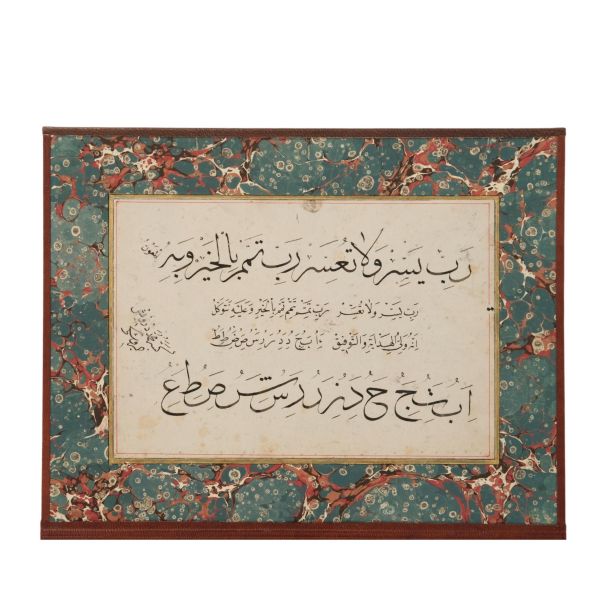 رب يسر ولا تعسر رب تمم بالخير وبه
العون
رب يسر ولا تعسر رب تمم تمم بالخير وعليه توكل
انه ولى الهداية والتوفيق ا ب ت ج د ذ ر ز د ر س ص ض ط ظ
ا ب ت ج ح د ز ر د ر س ش ص ط ع